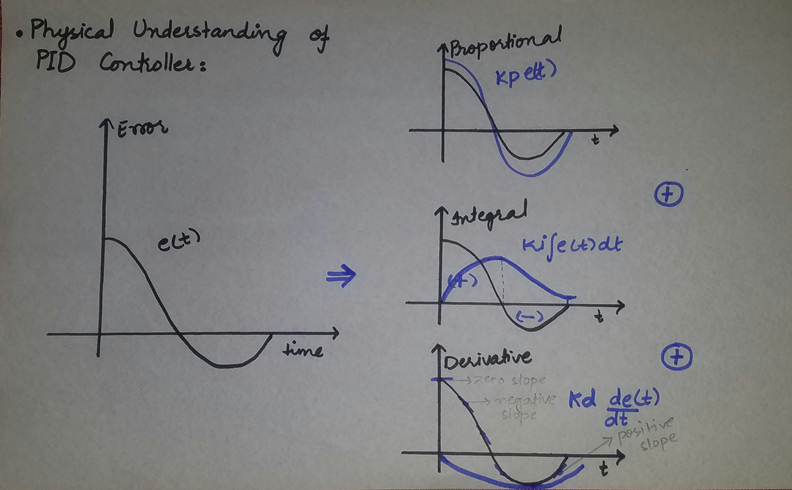 • Physical Understanding of
PID Controller:
Error
e(t)
time
⇒
Proportional
Kp e(t)
t
+
Integral
Ki∫e(t)dt
(+)
(-)
t
+
Derivative
→ zero slope
→ negative
slope
Kd de(t)
dt
→ positive
slope
t